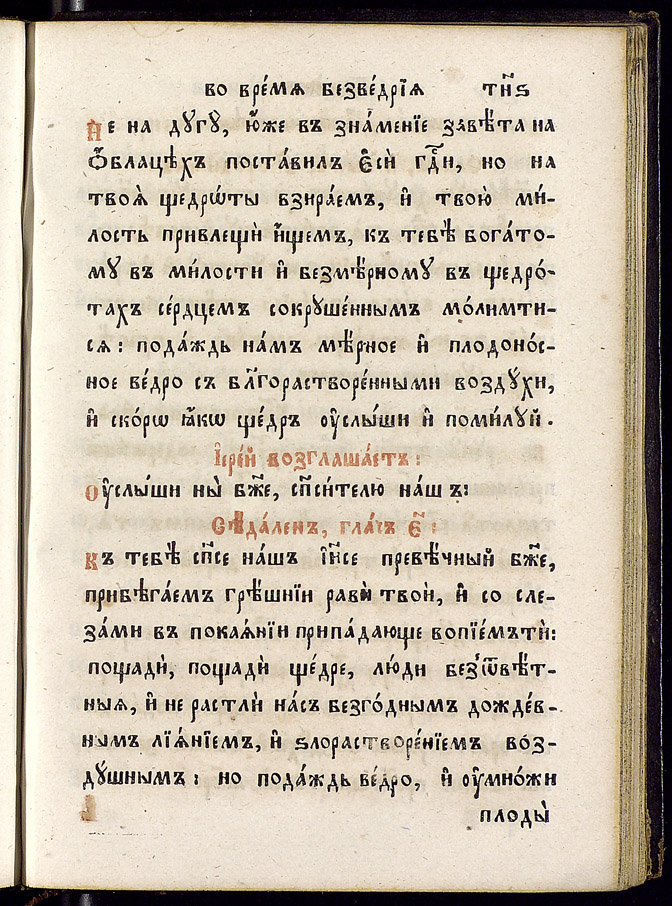 во вре́мѧ безве́дрїѧ тн҃ѕ
Не на дꙋгꙋ̀, ю҆́же въ зна́менїе завѣ́та на
ѻ҆́блацѣхъ поста́вилъ є҆сѝ гдⷭ҇и, но на
твоѧ̑ щедрѡ́ты взира́емъ, и҆ твою̀ ми́-
лость привлещѝ и҆́щемъ, къ тебѣ̀ бога́то-
мꙋ въ ми́лости и҆ безмѣ́рномꙋ въ щедро́-
тахъ се́рдцемъ сокрꙋше́ннымъ мо́лимти-
сѧ: пода́ждь на́мъ мѣ́рное и҆ плодоно́с-
ное ве́дро съ бл҃горастворе́нными воздꙋ́хи,
и҆ ско́рѡ ꙗ҆́кѡ ще́дръ ᲂу҆слы́ши и҆ поми́лꙋй.
І҆ере́й возглаша́етъ:
Оу҆слы́ши ны̀ бж҃е, сп҃си́телю на́шъ:
Сѣда́ленъ, гла́съ є҃:
Къ тебѣ̀ сп҃се на́шъ і҆и҃се превѣ́чный бж҃е,
прибѣга́емъ грѣ́шнїи рабѝ твоѝ, и҆ со сле-
за́ми въ покаѧ́нїи припа́дающе вопїе́мътѝ:
пощадѝ, пощадѝ ще́дре, лю́ди без̾ѿвѣ́т-
ныѧ, и҆ не растлѝ на́съ безго́днымъ дожде́в-
нымъ лїѧ́нїемъ, и҆ ѕлорастворе́нїемъ во́з-
дꙋшнымъ: но пода́ждь ве́дро, и҆ ᲂу҆мно́жи
плоды̀